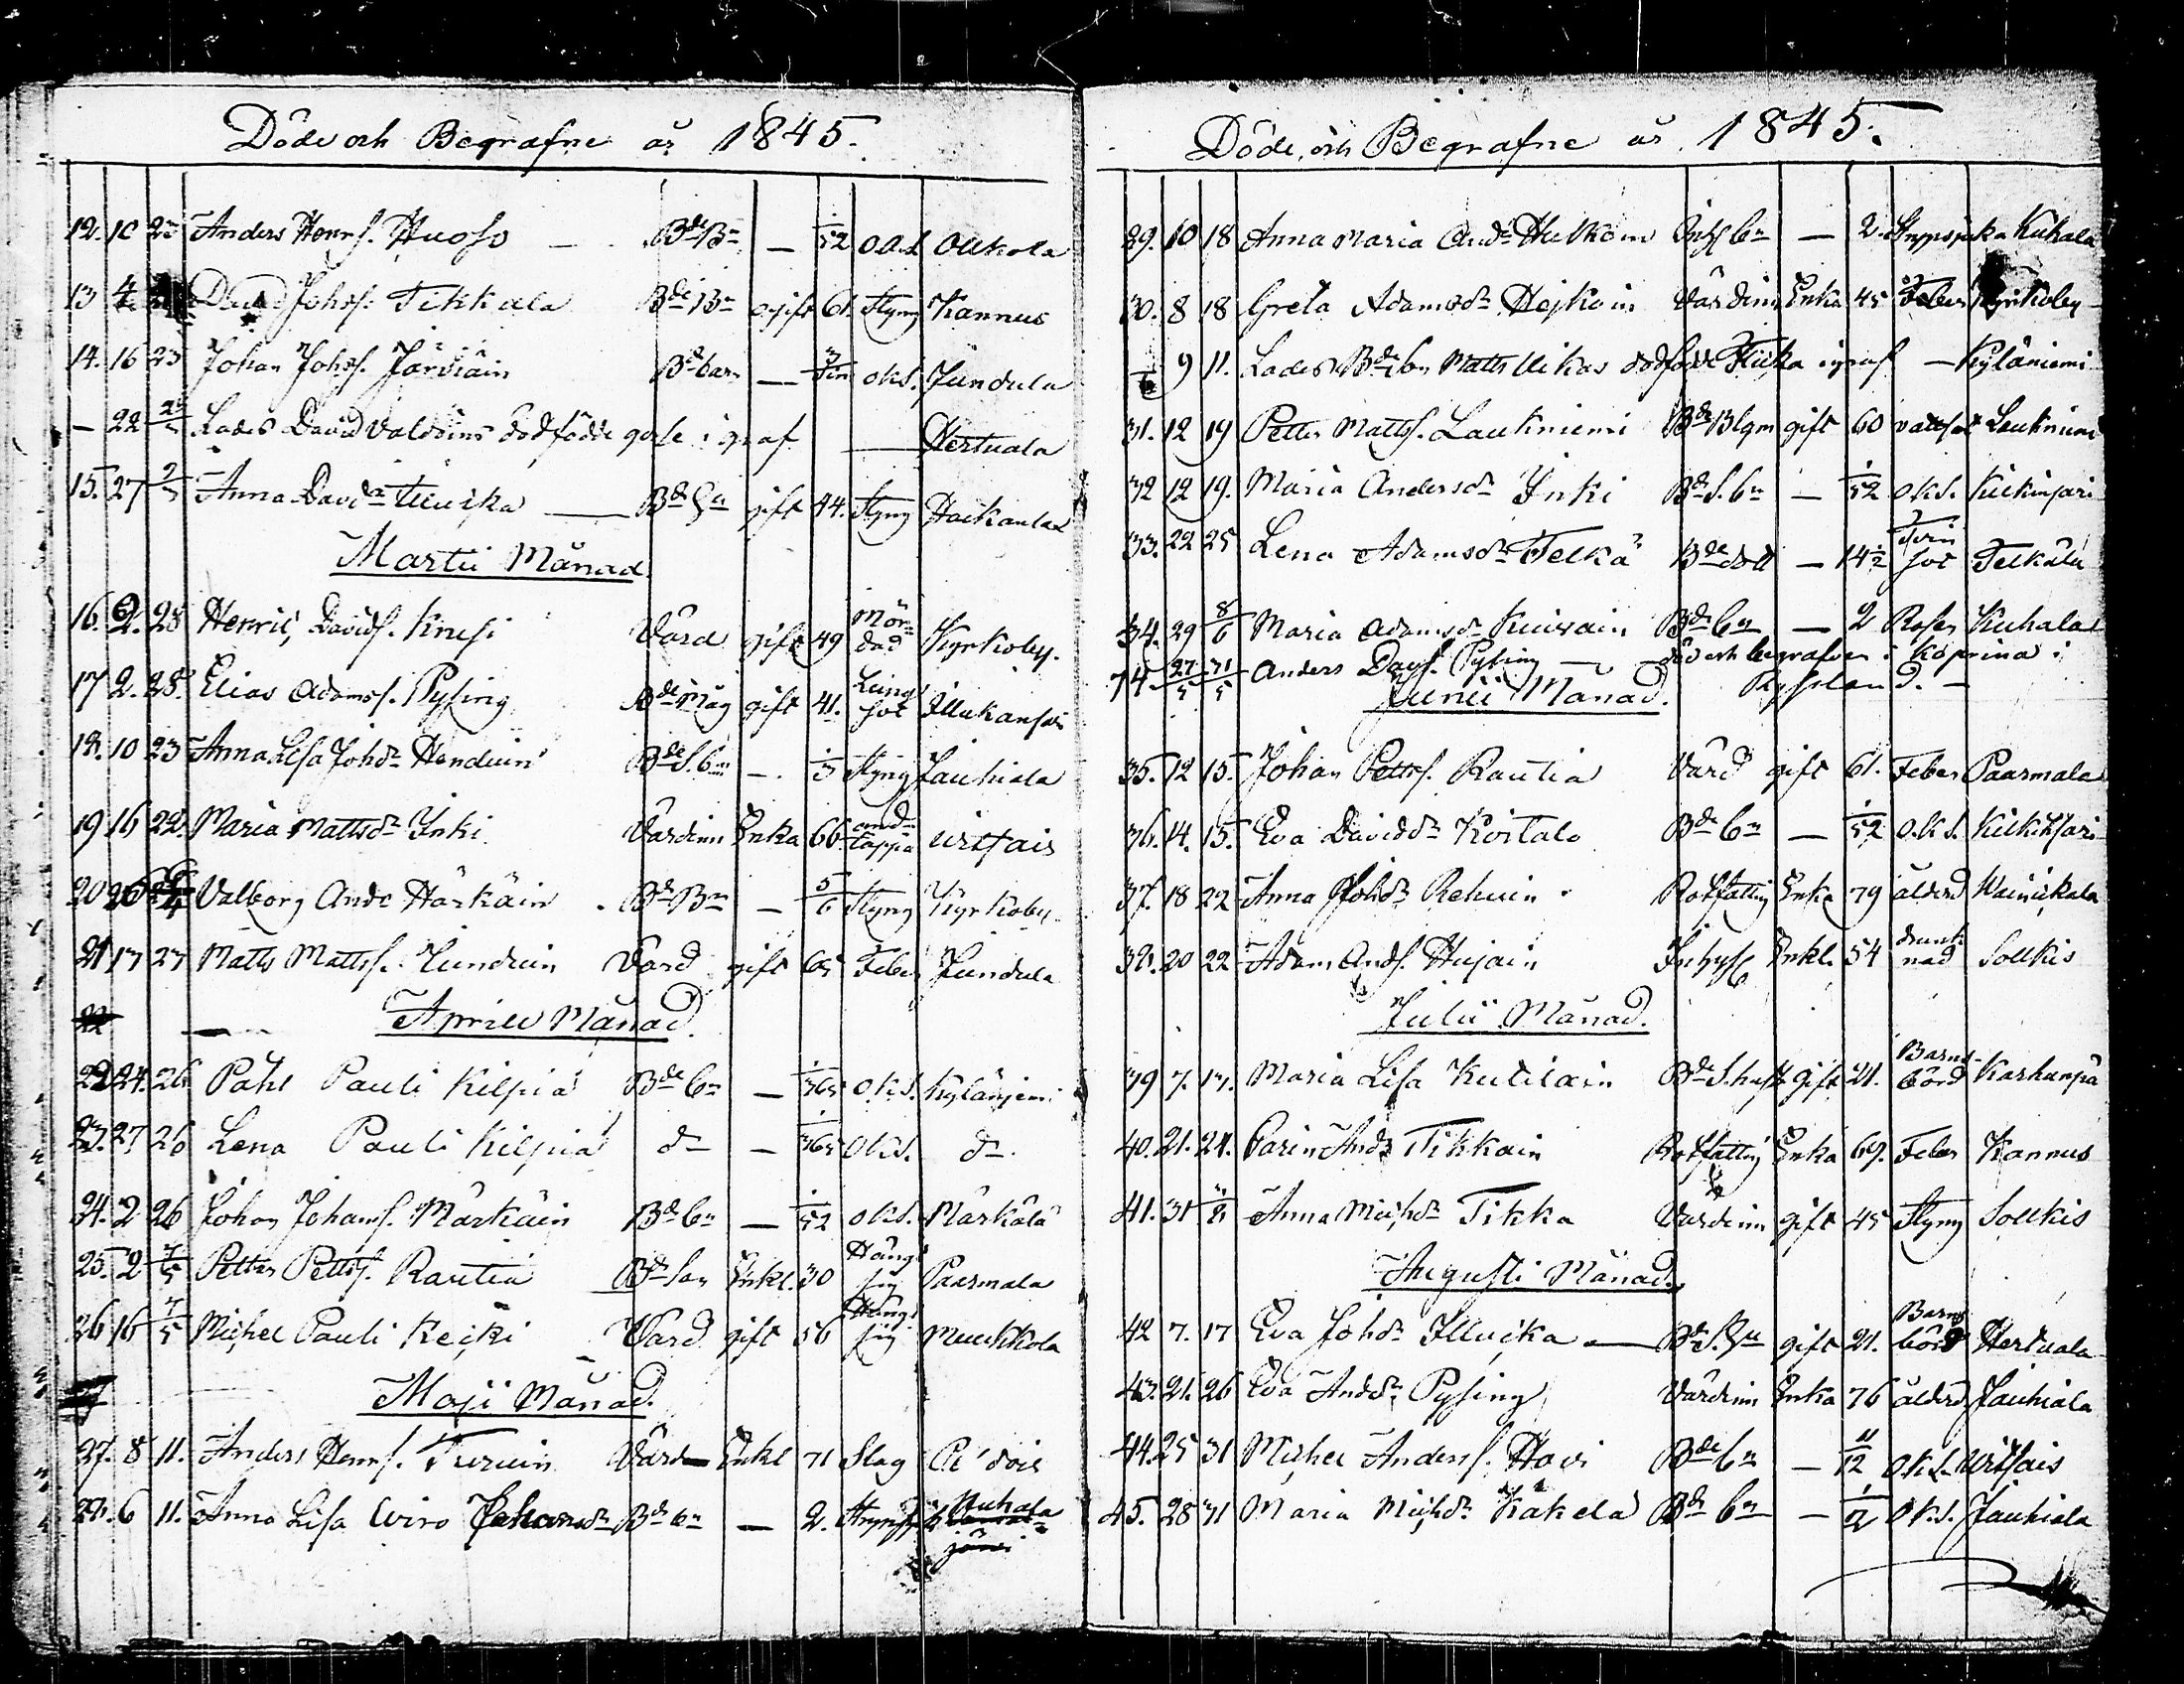 Döde och Begrafne år 1845.
12. 10 23 Anders Henrs. Huoso — Bde Bn — 1/52 o.k.s. Ollkola
13 4 David Johss. Tikkala Bde Bn ogift 61 Styng Kannus
14. 16 23 Johan Johss. Järviäin Bde barn — oks. Jundula
— 22 Lades David Valdoins dödfödde gosse i graf — Hertuala
15. 27 2/3 Anna Davdr — Bde gift 44. Styng Haikanlax
Martii Månad.
16. 2. 28 Henric Davids. Krusi Värd gift 49 Mördad Kyrkoby.
17 2. 28. Elias Adamss. Pysing Bde Måg gift 41. Lungsot
18. 10 23 Anna Lisa Johdr Henduin Bde S. bn — Styng Jauhiala
19 16 22. Maria Mattsdr Inki Värdinn Enka 66 andtäppa Urisais
20 26 Valborg Andr Härkäin Bde Bn — 5/6 Styng Kyrkoby.
21 17 27 Matts Mattss. Junduin Värd gift 65 Feber Jundula
22 — Aprill Månad.
22 24. 26 Påhl Pauli Kilpiä Bde bn — 1/365 o.k.s. Kyläniemi
23. 27 26 Lena Pauli Kilpiä do — 1/365 o.k.s. do.
24. 2 26 Johan Johans. Märkäin Bde bn — 1/52 o.k.s. Märkälä
25. 2 4/5 Petter Petts. Rautia Bde Son Enkl. 30 Hängt sig Paarmala
26 16 4/5 Michel Pauli Keiki Värd gift 56 Hängt sig Muukkola
Maji Månad.
27. 8 11. Anders Henrs. Turuin Värd Enkl 71 Slag
28. 6 11. Anna Lisa Wiro Johansdr Bde bn — 2. Kuhala
Döde och Begrafne år 1845.
29. 10 18 Anna Maria Andr Hulkoin Inhs bn — 2. Strypsjuka Kuhala
30. 8 18 Greta Adamsdr Hejkoin Värdinn Enka 45 Feber Kyrkoby
9 11. Lades Bde bn Matts Uikas dödfödde Flicka i graf — Kyläniemi
31. 12 19 Petter Mattss. Laukniemi Bde gift 60 vattsot Laukniemi
32 12 19. Maria Andersdr Inki Bde S. bn — 1/52 o.k.s. Kilkinjari
33. 22 25 Lena Adamsdr Telkä Bde dott — 14 1/2 Tvinsot Telkälä
34. 29 8/6 Maria Adamsdr Kuivain Bde bn — 2 Kuhala
74. 27/5 31/5 Anders Davs. Pysing — död och begrafven i Koprina i
Junii Månad. Ryssland. —
35. 12 15. Johan Petts. Rautia Värd gift 61. Feber Paarmala
36. 14. 15. Eva Daviddr Koitalo Bde bn — 1/52 o.k.s. Kilkikjari
37. 18 22 Anna Johdr Rehuin Rotfattig Enka 79 ålderd Wainikala
38. 20 22 Adam Ands. Hujain Inhys Enkl. 54 drunknad Sollkis
Julii Månad.
39 7. 13. Maria Lisa Kulilain Bde S. hust gift 21. Barnsbörd Karhunpä
40. 21. 24. Carin Andr Tikkain Rotfattig Enka 69. Feber Kannus
41. 31 Anna Michdr Tikka Värdinn gift 45 Styng Sollkis
Augusti Månad.
42 7. 17 Eva Johdr Illuicka — Bde S. gift 21. Barnsbörd Hertuala
43. 21. 26 Eva Andrdr Pysing Värdinn Enka 76 ålderd. Jauhiala
44. 25 31 Michel Anderss. Havi Bde bn — 11/12 o.k.s. Uitsais
45. 28 31 Maria Michdr Kakela Bde bn — 1/12 o.k.s. Jauhiala